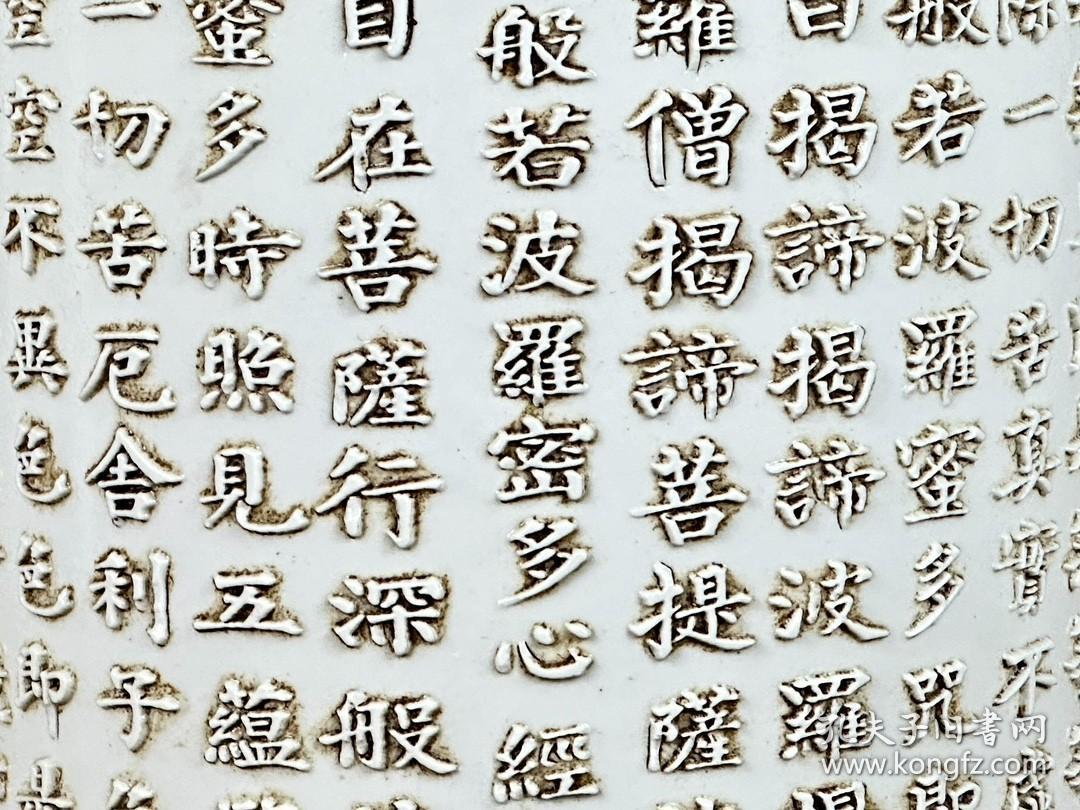 除一切苦真實不
般若波羅蜜多咒即
曰揭諦揭諦波羅
羅僧揭諦菩提薩
般若波羅密多心經
自在菩薩行深般
蜜多時照見五蘊
一切苦厄舍利子
空空不異色色即是
孔夫子旧书网
www.kongfz.com